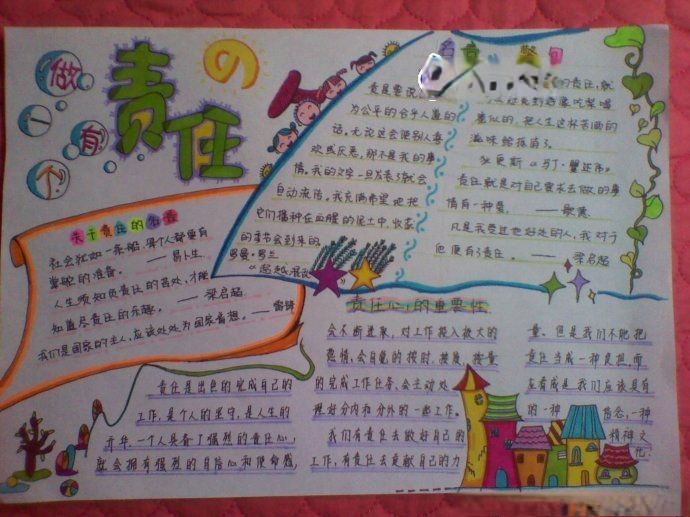 做一个有
责任の
关于责任的名言
社会犹如一条船,每个人都要有
掌舵的准备。——易卜生
人生须知负责任的苦处,才能
知道尽责任的乐趣。——梁启超
我们是国家的主人,应该处处为国家着想。——雷锋
责是要说
为公平的合乎人道的
话。无论这会使别人喜
欢或厌恶,那不是我的事
情。我的文字一旦发表了就会
自动流传。我充满希望地把
它们播种在血腥的泥土中,收获
的季节会到来的
罗曼·罗兰
《超越混战
名言警句
的责任,就
把人生这杯苦酒的
滋味给抹苗了
狄更斯《马丁·瞿述伟》
责任就是对自己要求去做的事
情有一种爱。——歌德
凡是我受过他好处的人,我对于
他便有了责任。——梁启超
责任心的重要性
责任是出色的完成自己的
工作,是个人的坚守,是人生的
升华。一个人具备了强烈的责任心,
就会拥有强烈的自信心和使命感,
会不断进取,对工作投入极大的
热情,会自觉的按时、按质、按量
的完成工作任务,会主动处
理好分内和分外的一些工作。
我们有责任去做好自己的
工作,有责任去贡献自己的力
量。但是我们不能把
责任当成一种负担,而
应看成是我们应该具有
的一种信念,一种
精神文
化。